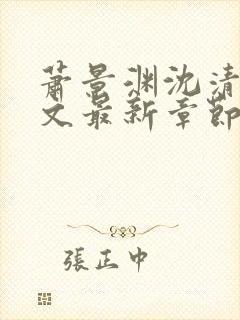 蕭景渊沈清
文最新章節
張正中